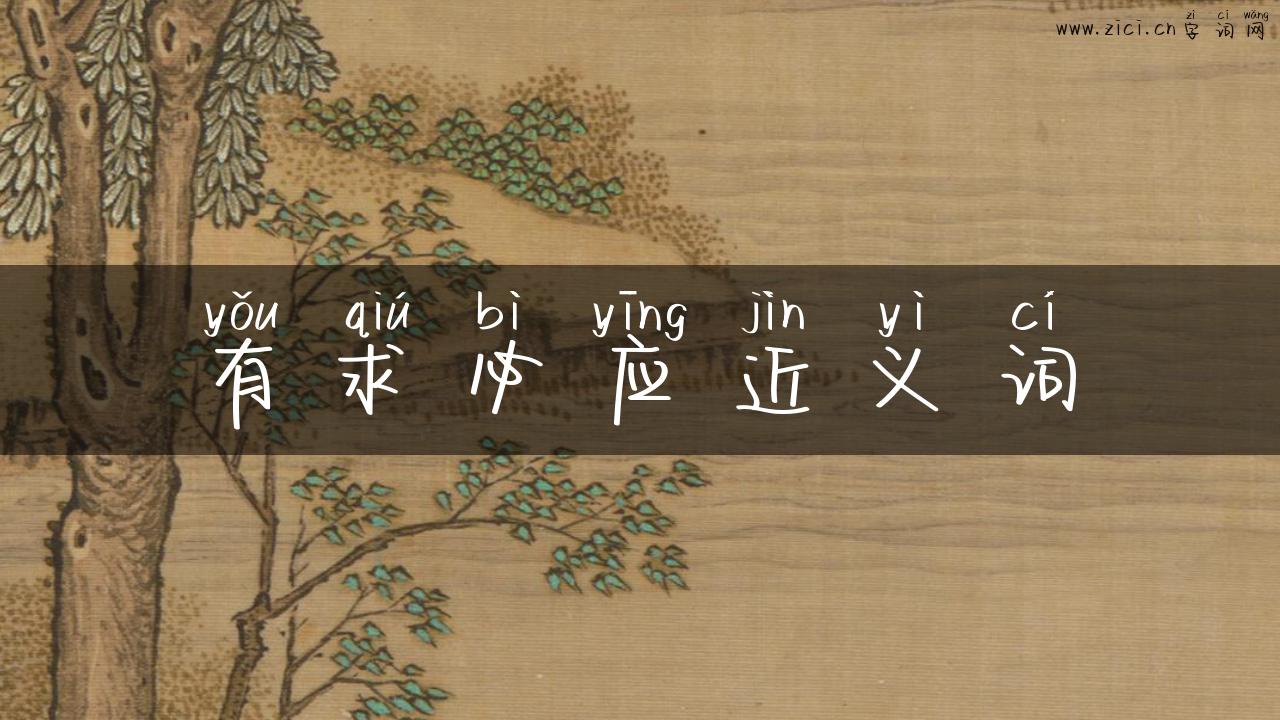 zì cí wǎng
www.zici.cn 字词网
yǒu qiú bì yīng jìn yì cí
有求必应近义词